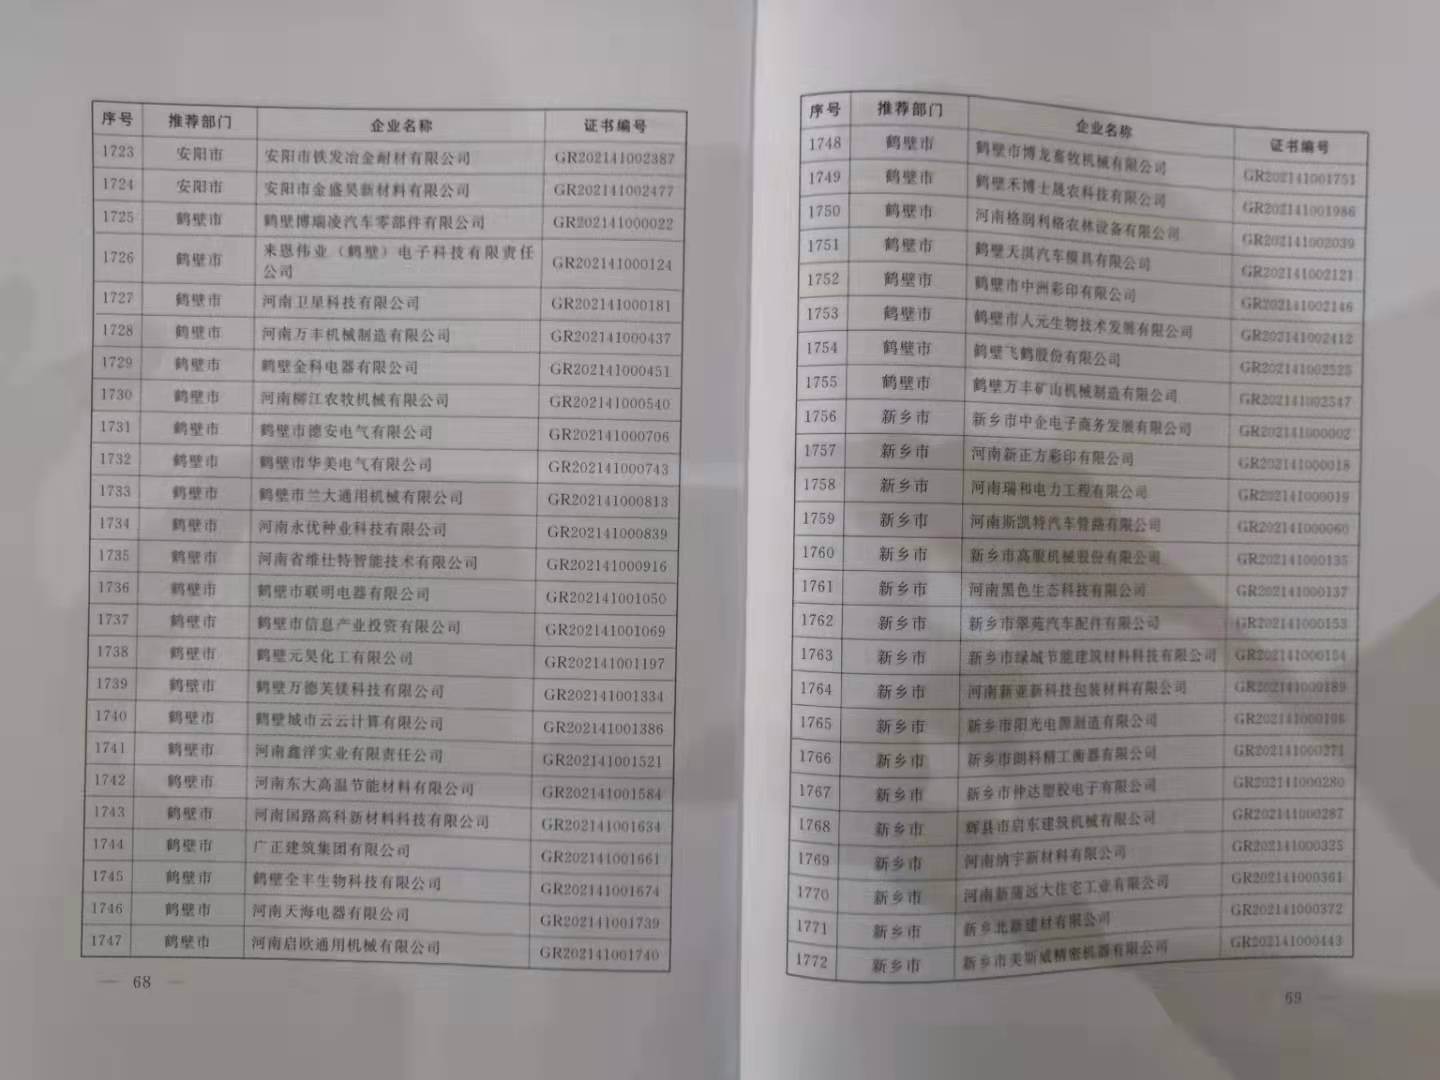 序号 推荐部门 企业名称 证书编号
1723 安阳市 安阳市铁发冶金耐材有限公司 GR202141002387
1724 安阳市 安阳市金盛昊新材料有限公司 GR202141002477
1725 鹤壁市 鹤壁博瑞凌汽车零部件有限公司 GR202141000022
1726 鹤壁市 来恩伟业（鹤壁）电子科技有限责任
公司 GR202141000124
1727 鹤壁市 河南卫星科技有限公司 GR202141000181
1728 鹤壁市 河南万丰机械制造有限公司 GR202141000437
1729 鹤壁市 鹤壁金科电器有限公司 GR202141000451
1730 鹤壁市 河南柳江农牧机械有限公司 GR202141000540
1731 鹤壁市 鹤壁市德安电气有限公司 GR202141000706
1732 鹤壁市 鹤壁市华美电气有限公司 GR202141000743
1733 鹤壁市 鹤壁市兰大通用机械有限公司 GR202141000813
1734 鹤壁市 河南永优种业科技有限公司 GR202141000839
1735 鹤壁市 河南省维仕特智能技术有限公司 GR202141000916
1736 鹤壁市 鹤壁市联明电器有限公司 GR202141001050
1737 鹤壁市 鹤壁市信息产业投资有限公司 GR202141001069
1738 鹤壁市 鹤壁元昊化工有限公司 GR202141001197
1739 鹤壁市 鹤壁万德芙镁科技有限公司 GR202141001334
1740 鹤壁市 鹤壁城市云云计算有限公司 GR202141001386
1741 鹤壁市 河南鑫洋实业有限责任公司 GR202141001521
1742 鹤壁市 河南东大高温节能材料有限公司 GR202141001584
1743 鹤壁市 河南国路高科新材料科技有限公司 GR202141001634
1744 鹤壁市 广正建筑集团有限公司 GR202141001661
1745 鹤壁市 鹤壁全丰生物科技有限公司 GR202141001674
1746 鹤壁市 河南天海电器有限公司 GR202141001739
1747 鹤壁市 河南启欧通用机械有限公司 GR202141001740
— 68 —
序号 推荐部门 企业名称 证书编号
1748 鹤壁市 鹤壁市博龙畜牧机械有限公司 GR202141001751
1749 鹤壁市 鹤壁禾博士晟农科技有限公司 GR202141001986
1750 鹤壁市 河南格润利格农林设备有限公司 GR202141002039
1751 鹤壁市 鹤壁天淇汽车模具有限公司 GR202141002121
1752 鹤壁市 鹤壁市中洲彩印有限公司 GR202141002146
1753 鹤壁市 鹤壁市人元生物技术发展有限公司 GR202141002412
1754 鹤壁市 鹤壁飞鹤股份有限公司 GR202141002525
1755 鹤壁市 鹤壁万丰矿山机械制造有限公司 GR202141002547
1756 新乡市 新乡市中企电子商务发展有限公司 GR202141000002
1757 新乡市 河南新正方彩印有限公司 GR202141000018
1758 新乡市 河南瑞和电力工程有限公司 GR202141000019
1759 新乡市 河南斯凯特汽车管路有限公司 GR202141000060
1760 新乡市 新乡市高服机械股份有限公司 GR202141000135
1761 新乡市 河南黑色生态科技有限公司 GR202141000137
1762 新乡市 新乡市翠苑汽车配件有限公司 GR202141000153
1763 新乡市 新乡市绿城节能建筑材料科技有限公司 GR202141000154
1764 新乡市 河南新亚新科技包装材料有限公司 GR202141000189
1765 新乡市 新乡市阳光电源制造有限公司 GR202141000198
1766 新乡市 新乡市朗科精工衡器有限公司 GR202141000271
1767 新乡市 新乡市仲达塑胶电子有限公司 GR202141000280
1768 新乡市 辉县市启东建筑机械有限公司 GR202141000287
1769 新乡市 河南纳宇新材料有限公司 GR202141000325
1770 新乡市 河南新蒲远大住宅工业有限公司 GR202141000361
1771 新乡市 新乡北新建材有限公司 GR202141000372
1772 新乡市 新乡市美斯威精密机器有限公司 GR202141000443
69 —